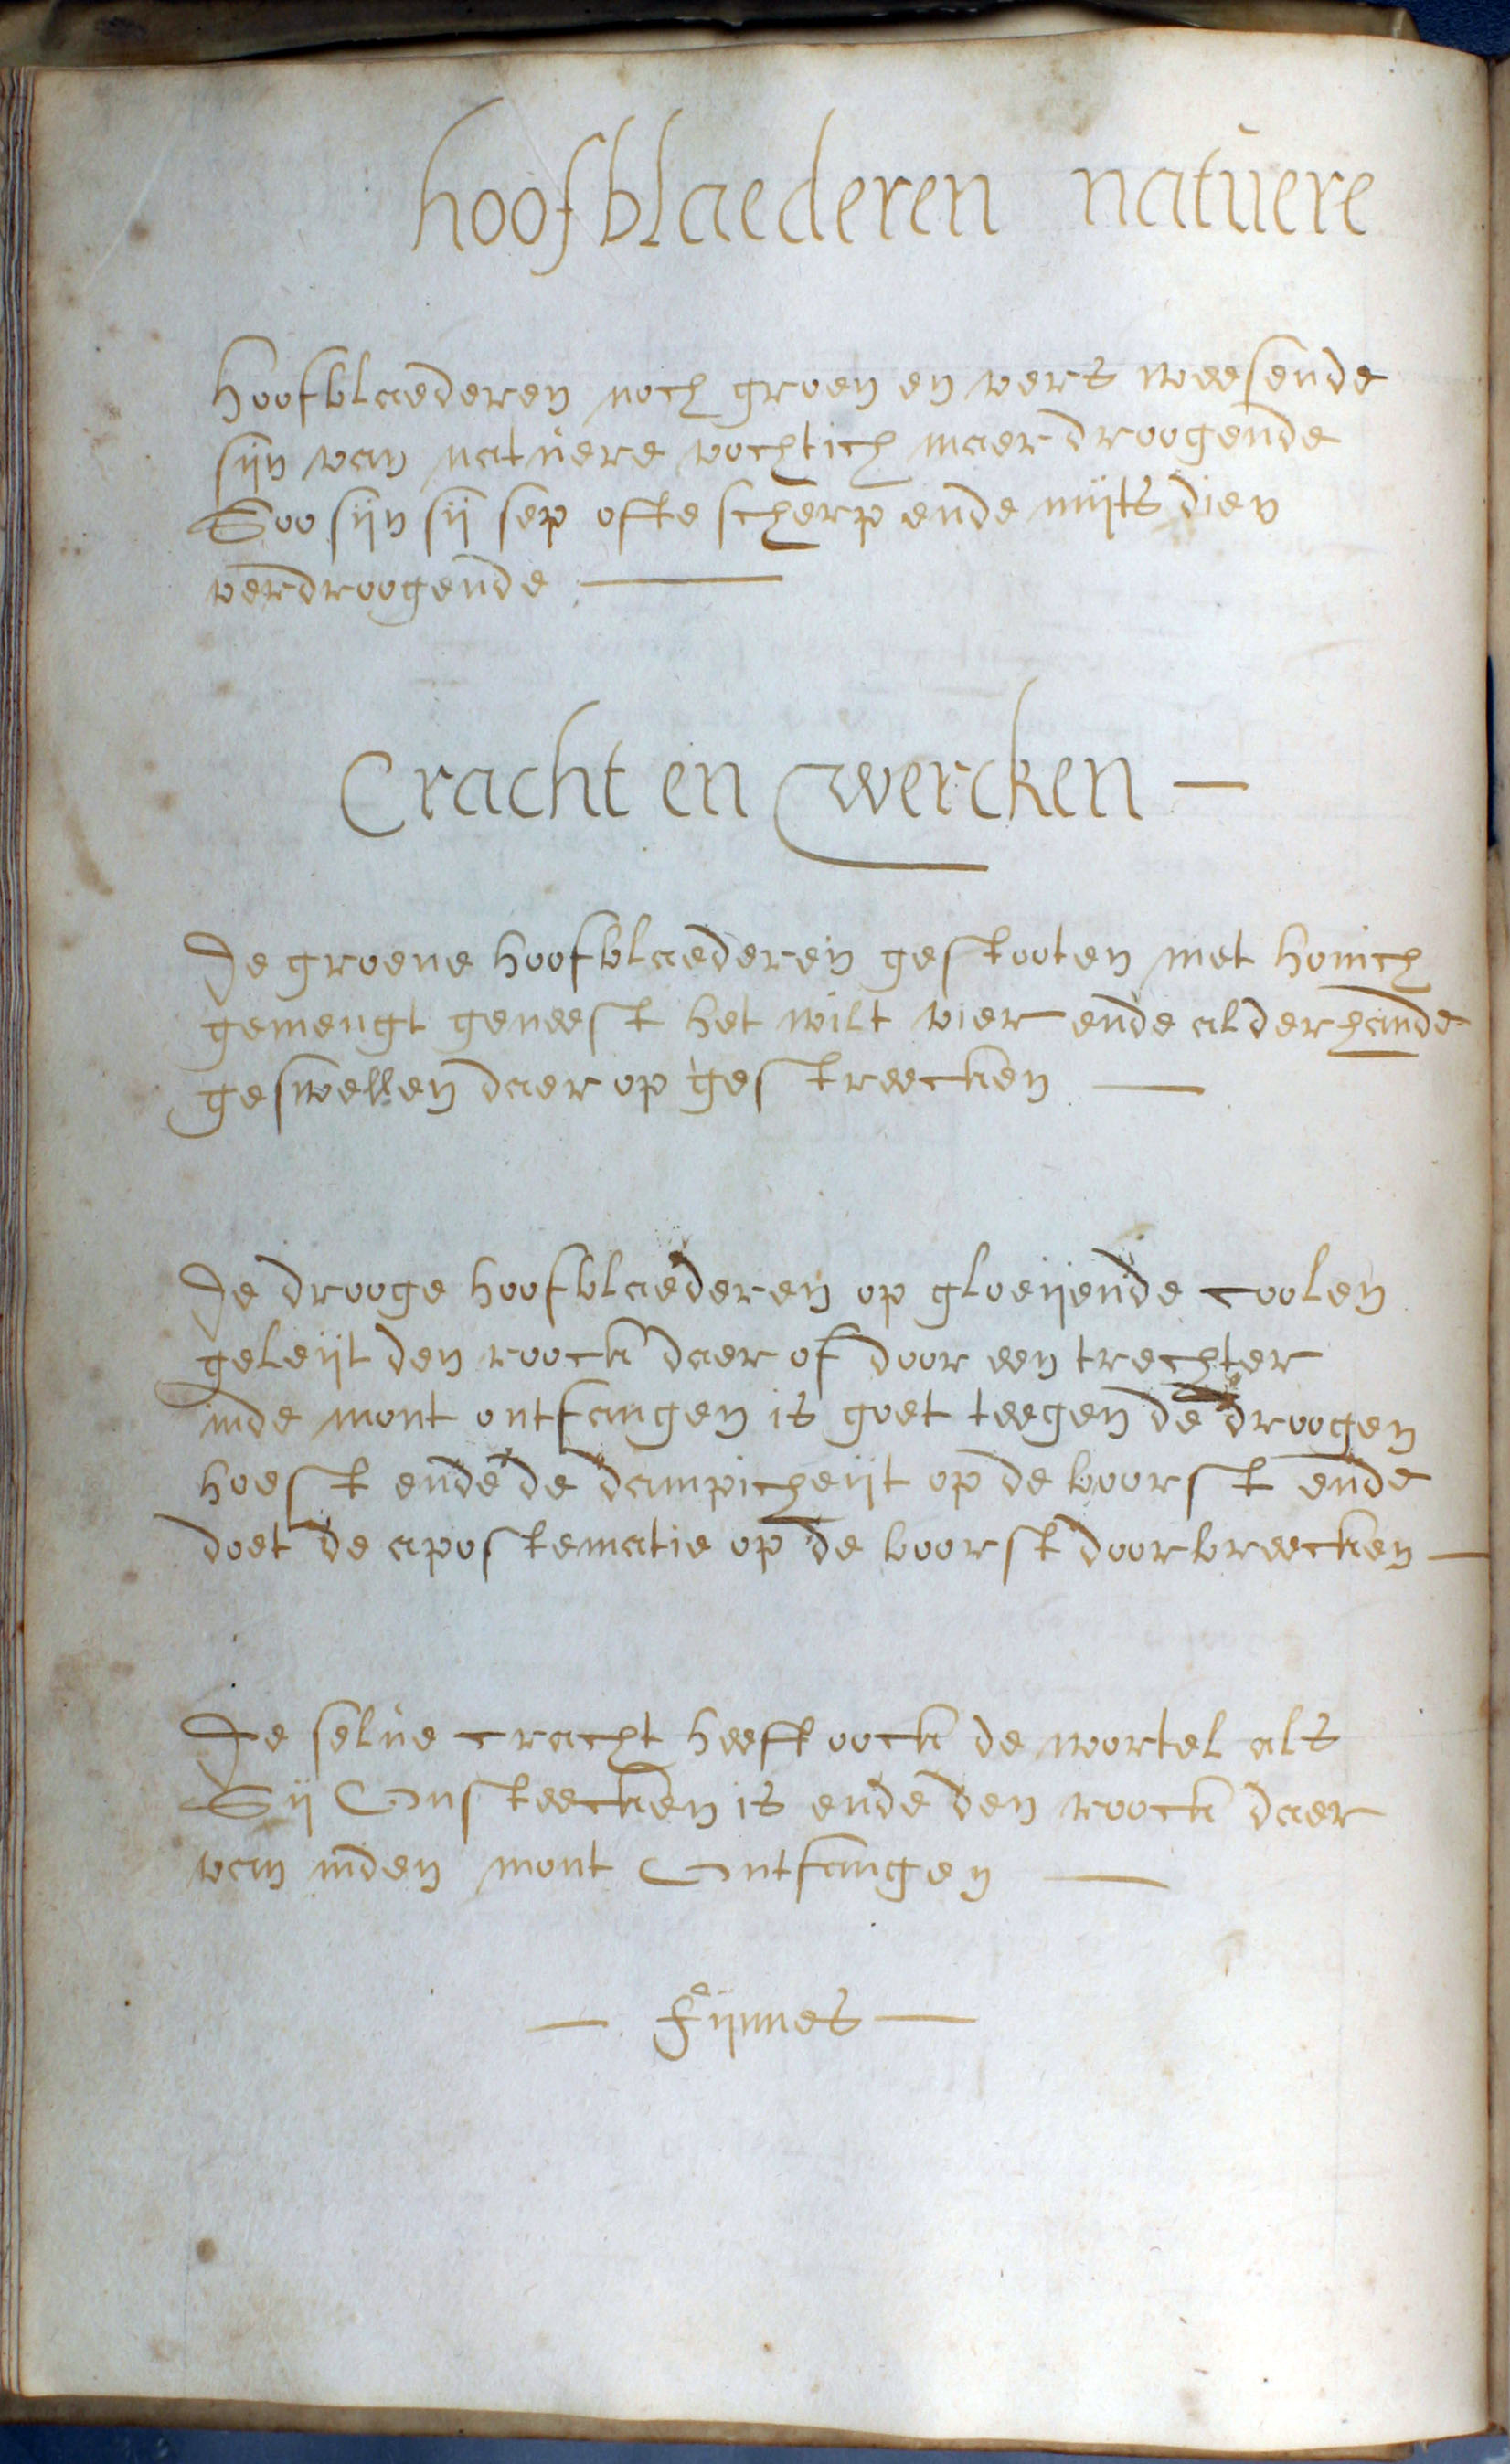 hoofblaederen natuere
Hoofblaederen noch groen en vers weesende
sijn van natuere vochtich maer droogende
Soo sijn sij sep ofte scherp ende mijts dien
verdroogende
Cracht en wercken
De groene hoofblaederen gestooten met honich
gemengt geneest het wilt vier ende alderhande
geswellen daer op gestreecken
De drooge hoofblaederen op gloeijende coolen
geleijt den roock daer of door een trechter
inde mont ontfangen is goet teegen de droogen
hoest ende de dampicheijt op de boorst ende
doet de apostematie op de boorst doorbreecken
De selue cracht heeft oock de wortel als
Sij Onsteecken is ende den roock daer
van inden mont Ontfangen
Fijnnes